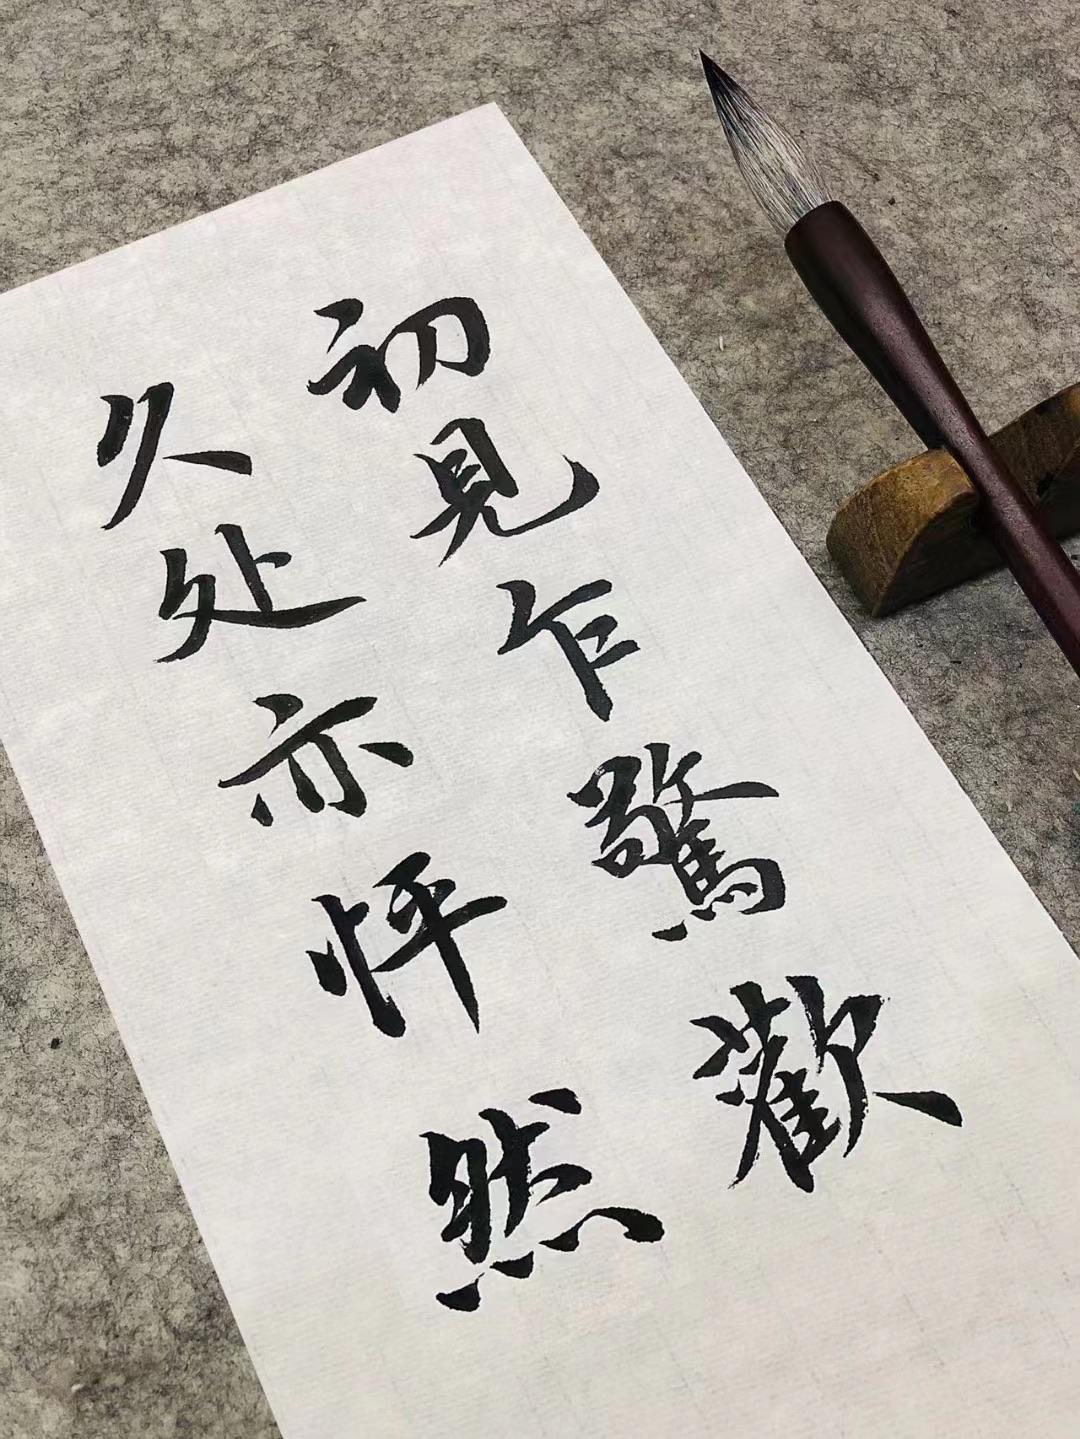 初見乍驚歡
久处亦怦然